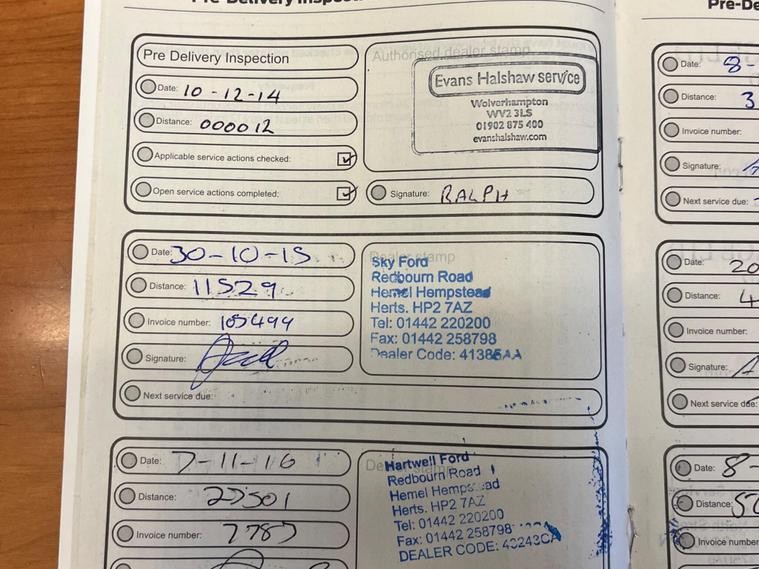 Pre Delivery Inspection
Authorised dealer stamp
Date: 10-12-14
Distance: 000012
Applicable service actions checked:
Open service actions completed:
Evans Halshaw service
Wolverhampton
WV2 3LS
01902 875 400
evanshalshaw.com
Signature: RALPH
Date: 30-10-15
Distance: 11529
Invoice number: 105499
Signature:
Next service due:
Dealer stamp
Sky Ford
Redbourn Road
Hemel Hempstead
Herts. HP2 7AZ
Tel: 01442 220200
Fax: 01442 258798
Dealer Code: 41385AA
Date: 7-11-16
Distance: 27501
Invoice number: 7787
Hartwell Ford
Redbourn Road
Hemel Hempstead
Herts. HP2 7AZ
Tel: 01442 220200
Fax: 01442 258798
DEALER CODE: 43243CA
Date: 8-
Distance: 3
Invoice number:
Signature:
Next service due:
Date: 20
Distance: 4
Invoice number:
Signature:
Next service due:
Date: 8-
Distance:
Invoice number